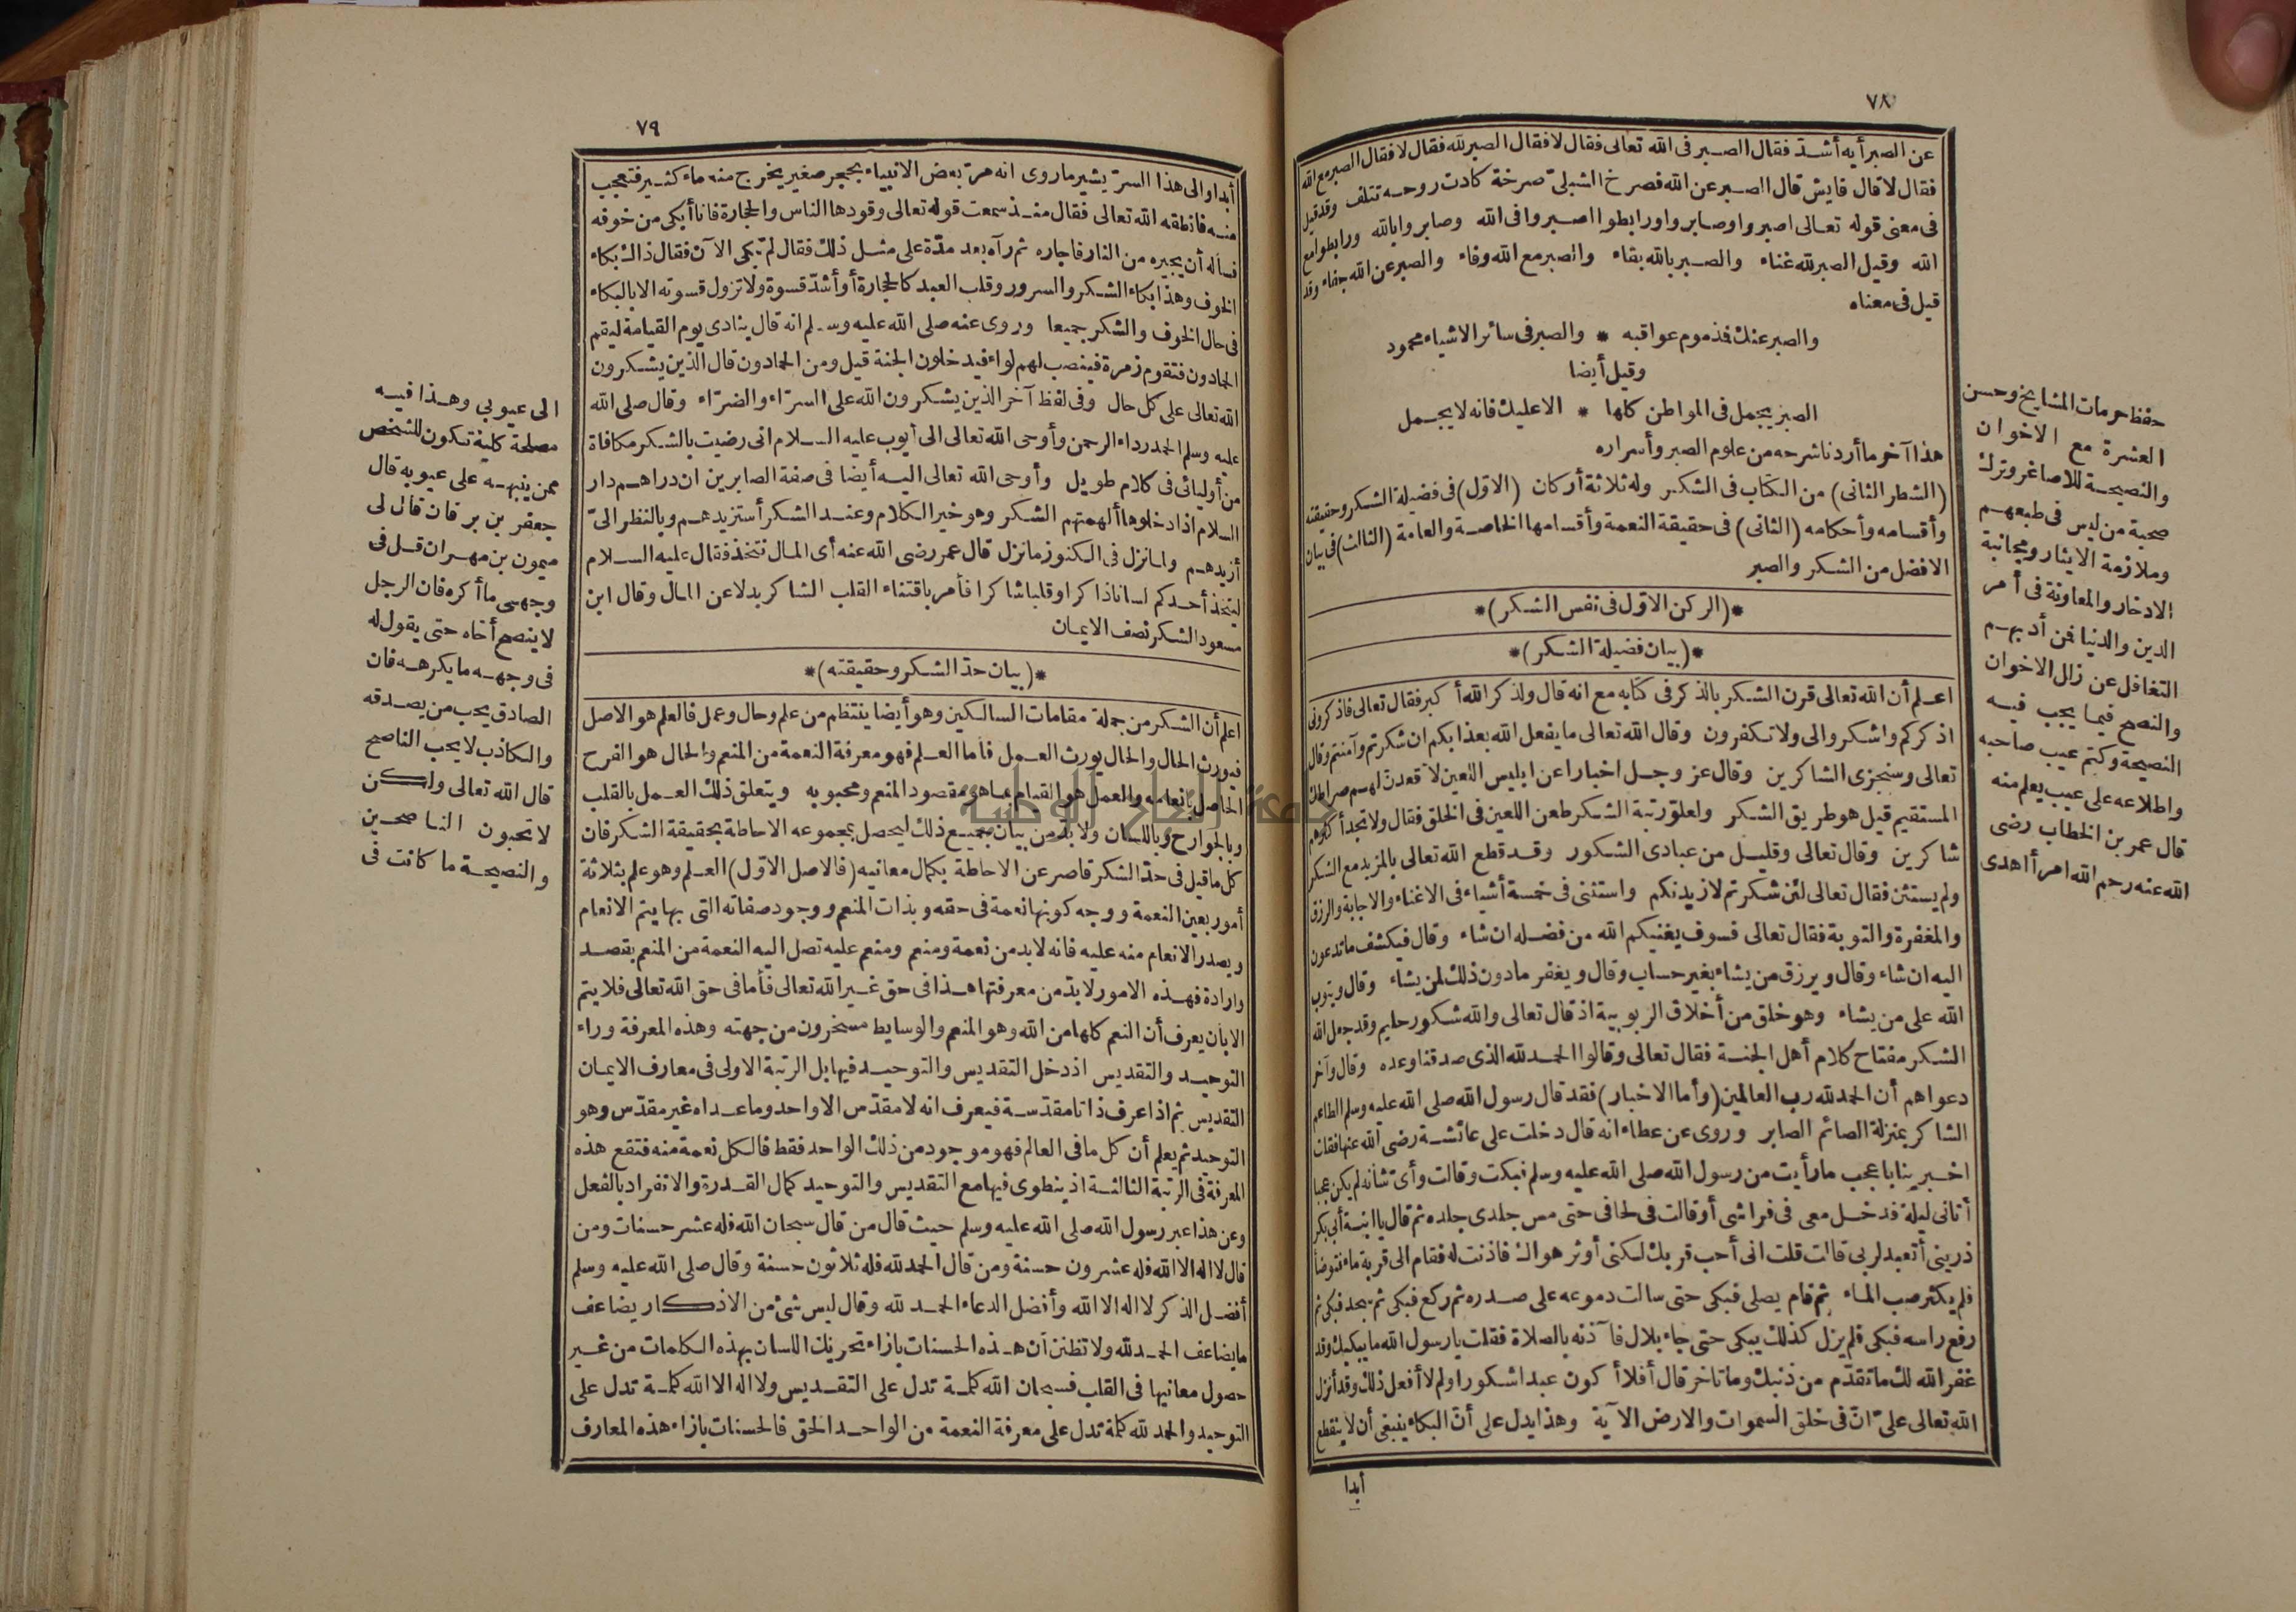 ٧٨
عن الصبر أيه أشد فقال الصبر فى الله تعالى فقال لا فقال الصبر لله فقال لا فقال الصبر مع الله
فقال لا قال فايش قال الصبر عن الله فصرخ الشبلى صرخة كادت روحه تتلف وقد قيل
فى معنى قوله تعالى اصبروا وصابروا ورابطوا اصبروا فى الله وصابروا بالله ورابطوا مع
الله وقيل الصبر لله غناء والصبر بالله بقاء والصبر مع الله وفاء والصبر عن الله جفاء وقد
قيل فى معناه
والصبر عنك فذموم عواقبه * والصبر فى سائر الاشياء محمود
وقيل أيضا
الصبر يجمل فى المواطن كلها * الا عليك فانه لا يجمل
هذا آخر ما أردنا شرحه من علوم الصبر وأسراره
(الشطر الثانى) من الكتاب فى الشكر وله ثلاثة أركان (الاول) فى فضيلة الشكر وحقيقته
وأقسامه وأحكامه (الثانى) فى حقيقة النعمة وأقسامها الخاصة والعامة (الثالث) فى بيان
الافضل من الشكر والصبر
*(الركن الاول فى نفس الشكر)*
*(بيان فضيلة الشكر)*
اعلم أن الله تعالى قرن الشكر بالذكر فى كتابه مع انه قال ولذكر الله أكبر فقال تعالى فاذكرونى
اذكركم واشكروا لى ولا تكفرون وقال الله تعالى ما يفعل الله بعذابكم ان شكرتم وآمنتم وقال
تعالى وسنجزى الشاكرين وقال عز وجل اخبارا عن ابليس اللعين لاقعدن لهم صراطك
المستقيم قيل هو طريق الشكر ولعلو رتبة الشكر طعن اللعين فى الخلق فقال ولا تجد أكثرهم
شاكرين وقال تعالى وقليل من عبادى الشكور وقد قطع الله تعالى بالمزيد مع الشكر
ولم يستثن فقال تعالى لئن شكرتم لازيدنكم واستثنى فى خمسة أشياء فى الاغناء والاجابة والرزق
والمغفرة والتوبة فقال تعالى فسوف يغنيكم الله من فضله ان شاء وقال فيكشف ما تدعون
اليه ان شاء وقال ويرزق من يشاء بغير حساب وقال ويغفر ما دون ذلك لمن يشاء وقال ويتوب
الله على من يشاء وهو خلق من أخلاق الربوبية اذ قال تعالى والله شكور حليم وقد جعل الله
الشكر مفتاح كلام أهل الجنة فقال تعالى وقالوا الحمد لله الذى صدقنا وعده وقال وآخر
دعواهم أن الحمد لله رب العالمين (وأما الاخبار) فقد قال رسول الله صلى الله عليه وسلم الطاعم
الشاكر بمنزلة الصائم الصابر وروى عن عطاء انه قال دخلت على عائشة رضى الله عنها فقلت
اخبرينا باعجب ما رأيت من رسول الله صلى الله عليه وسلم فبكت وقالت وأى شأنه لم يكن عجبا
أتانى ليلة فدخل معى فى فراشى أو قالت فى لحافى حتى مس جلدى جلده ثم قال يا ابنة أبى بكر
ذرينى أتعبد لربى قالت قلت انى أحب قربك لكنى أوثر هواك فاذنت له فقام الى قربة ماء فتوضأ
فلم يكثر صب الماء ثم قام يصلى فبكى حتى سالت دموعه على صدره ثم ركع فبكى ثم سجد فبكى ثم
رفع راسه فبكى فلم يزل كذلك يبكى حتى جاء بلال فآذنه بالصلاة فقلت يا رسول الله ما يبكيك وقد
غفر الله لك ما تقدم من ذنبك وما تاخر قال أفلا أكون عبدا شكورا ولم لا أفعل ذلك وقد أنزل
الله تعالى على ان فى خلق السموات والارض الآية وهذا يدل على أن البكاء ينبغى أن لا ينقطع
أبدا
حفظ حرمات المشايخ وحسن
العشرة مع الاخوان
والنصيحة للاصاغر وترك
صحبة من ليس فى طبعهم
وملازمة الايثار ومجانبة
الادخار والمعاونة فى أمر
الدين والدنيا فن أدبهم
التغافل عن زلل الاخوان
والنصح فيما يجب فيه
النصيحة وكتم عيب صاحبه
واطلاعه على عيب يعلم منه
قال عمر بن الخطاب رضى
الله عنه رحم الله امرأ أهدى
٧٩
أبدا والى هذا السر يشير ما روى انه مر بعض الانبياء بحجر صغير يخرج منه ماء كثير فتعجب
منه فانطقه الله تعالى فقال منذ سمعت قوله تعالى وقودها الناس والحجارة فانا أبكى من خوفه
فسأله أن يجيره من النار فاجاره ثم رآه بعد مدة على مثل ذلك فقال لم تبكى الآن فقال ذاك بكاء
الخوف وهذا بكاء الشكر والسرور وقلب العبد كالحجارة أو أشد قسوة ولا تزول قسوته الا بالبكاء
فى حال الخوف والشكر جميعا وروى عنه صلى الله عليه وسلم انه قال ينادى يوم القيامة ليقم
الحمادون فتقوم زمرة فينصب لهم لواء فيدخلون الجنة قيل ومن الحمادون قال الذين يشكرون
الله تعالى على كل حال وفى لفظ آخر الذين يشكرون الله على السراء والضراء وقال صلى الله
عليه وسلم الحمد رداء الرحمن وأوحى الله تعالى الى أيوب عليه السلام انى رضيت بالشكر مكافاة
من أوليائى فى كلام طويل وأوحى الله تعالى اليه أيضا فى صفة الصابرين ان دراهم دار
السلام اذا دخلوها ألهمتهم الشكر وهو خير الكلام وعند الشكر أستزيدهم وبالنظر الى
أزيدهم ولما نزل فى الكنوز ما نزل قال عمر رضى الله عنه أى المال نتخذ فقال عليه السلام
ليتخذ أحدكم لسانا ذاكرا وقلبا شاكرا فأمر باقتناء القلب الشاكر بدلا عن المال وقال ابن
مسعود الشكر نصف الايمان
*(بيان حد الشكر وحقيقته)*
اعلم أن الشكر من جملة مقامات السالكين وهو أيضا ينتظم من علم وحال وعمل فالعلم هو الاصل
فيورث الحال والحال يورث العمل فاما العلم فهو معرفة النعمة من المنعم والحال هو الفرح
الحاصل بانعامه والعمل هو القيام بما هو مقصود المنعم ومحبوبه ويتعلق ذلك العمل بالقلب
وبالجوارح وباللسان ولا بد من بيان جميع ذلك ليحصل بمجموعه الاحاطة بحقيقة الشكر فان
كل ما قيل فى حد الشكر قاصر عن الاحاطة بكمال معانيه (فالاصل الاول) العلم وهو علم بثلاثة
أمور بعين النعمة ووجه كونها نعمة فى حقه وبذات المنعم ووجود صفاته التى بها يتم الانعام
ويصدر الانعام منه عليه فانه لا بد من نعمة ومنعم ومنعم عليه تصل اليه النعمة من المنعم بقصد
وارادة فهذه الامور لا بد من معرفتها هذا فى حق غير الله تعالى فأما فى حق الله تعالى فلا يتم
الا بأن يعرف أن النعم كلها من الله وهو المنعم والوسايط مسخرون من جهته وهذه المعرفة وراء
التوحيد والتقديس اذ دخل التقديس والتوحيد فيها بل الرتبة الاولى فى معارف الايمان
التقديس ثم اذا عرف ذاتا مقدسة فيعرف انه لا مقدس الا واحد وما عداه غير مقدس وهو
التوحيد ثم يعلم أن كل ما فى العالم فهو موجود من ذلك الواحد فقط فالكل نعمة منه فتقع هذه
المعرفة فى الرتبة الثالثة اذ ينطوى فيها مع التقديس والتوحيد كمال القدرة والانفراد بالفعل
وعن هذا عبر رسول الله صلى الله عليه وسلم حيث قال من قال سبحان الله فله عشر حسنات ومن
قال لا اله الا الله فله عشرون حسنة ومن قال الحمد لله فله ثلاثون حسنة وقال صلى الله عليه وسلم
أفضل الذكر لا اله الا الله وأفضل الدعاء الحمد لله وقال ليس شئ من الاذكار يضاعف
ما يضاعف الحمد لله ولا تظنن أن هذه الحسنات بازاء تحريك اللسان بهذه الكلمات من غير
حصول معانيها فى القلب فسبحان الله كلمة تدل على التقديس ولا اله الا الله كلمة تدل على
التوحيد والحمد لله كلمة تدل على معرفة النعمة من الواحد الحق فالحسنات بازاء هذه المعارف
الى عيوبى وهذا فيه
مصلحة كلية تكون للشخص
ممن ينبهه على عيوبه قال
جعفر بن برقان قال لى
ميمون بن مهران قل فى
وجهى ما أكره فان الرجل
لا ينصح أخاه حتى يقول له
فى وجهه ما يكرهه فان
الصادق يحب من يصدقه
والكاذب لا يحب الناصح
قال الله تعالى ولكن
لا تحبون الناصحين
والنصيحة ما كانت فى
جامعة النجاح الوطنية